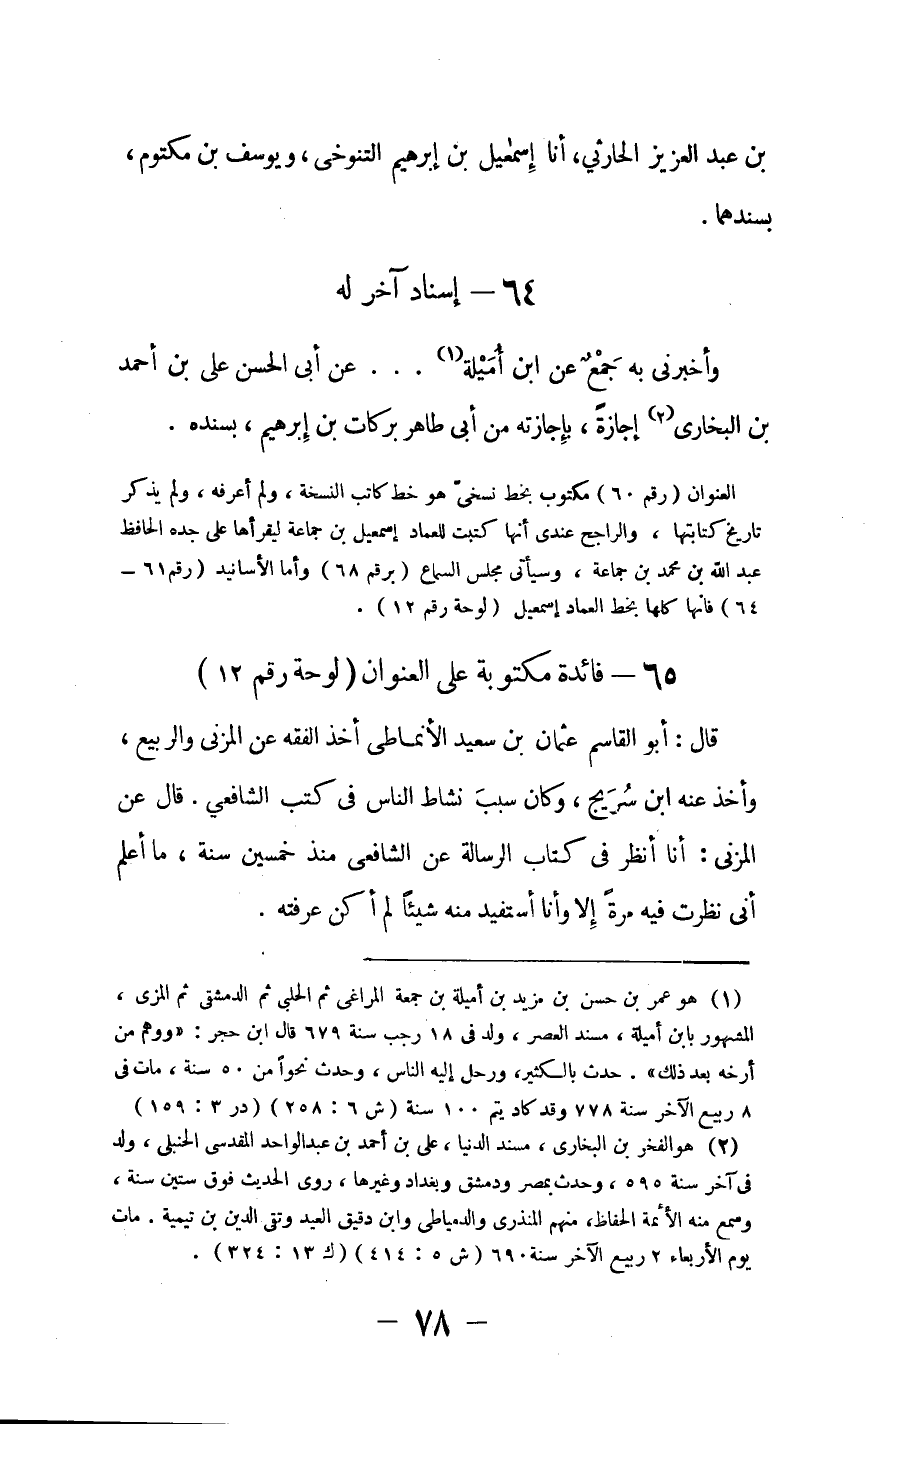 بن عبد العزيز الحارثي، أنا إسمٰعيل بن إبرهيم التنوخى، ويوسف بن مكتوم،
بسندهما .
٦٤ – إسناد آخر له
وأخبرنى به جَمْعٌ عن ابن أُمَيْلة(١) . . . عن أبى الحسن على بن أحمد
بن البخارى(٢) إجازةً ، بإجازته من أبى طاهر بركات بن إبرهيم ، بسنده .
العنوان ( رقم ٦٠ ) مكتوب بخط نسخىّ هو خط كاتب النسخة ، ولم أعرفه ، ولم يذكر
تاريخ كتابتها ، والراجح عندى أنها كتبت للعماد إسمعيل بن جماعة ليقرأها على جده الحافظ
عبد الله بن محمد بن جماعة ، وسيأتى مجلس السماع ( برقم ٦٨ ) وأما الأسانيد ( رقم ٦١ –
٦٤ ) فانها كلها بخط العماد إسمعيل ( لوحة رقم ١٢ ) .
٦٥ – فائدة مكتوبة على العنوان ( لوحة رقم ١٢ )
قال : أبو القاسم عثمان بن سعيد الأنمـاطى أخذ الفقه عن المزنى والربيع ،
وأخذ عنه ابن سُرَيج ، وكان سببَ نشاط الناس فى كتب الشافعي . قال عن
المزنى : أنا أنظر فى كتاب الرسالة عن الشافعى منذ خمسين سنة ، ما أعلم
أنى نظرت فيه مرةً إلا وأنا أستفيد منه شيئاً لم أكن عرفته .
(١) هو عمر بن حسن بن مزيد بن أميلة بن جمعة المراغى ثم الحلبي ثم الدمشقى ثم المزى ،
المشهور بابن أميلة ، مسند العصر ، ولد فى ١٨ رجب سنة ٦٧٩ قال ابن حجر : «ووهم من
أرخه بعد ذلك» . حدث بالكثير، ورحل إليه الناس ، وحدث نحواً من ٥٠ سنة ، مات فى
٨ ربيع الآخر سنة ٧٧٨ وقد كاد يتم ١٠٠ سنة ( ش ٦ : ٢٥٨ ) ( در ٣ : ١٥٩ )
(٢) هو الفخر بن البخارى ، مسند الدنيا ، على بن أحمد بن عبد الواحد المقدسى الحنبلى ، ولد
فى آخر سنة ٥٩٥ ، وحدث بمصر ودمشق وبغداد وغيرها ، روى الحديث فوق ستين سنة ،
وسمع منه الأئمة الحفاظ، منهم المنذرى والدمياطى وابن دقيق العيد وتقى الدين بن تيمية . مات
يوم الأربعاء ٢ ربيع الآخر سنة ٦٩٠ ( ش ٥ : ٤١٤ ) ( ك ١٣ : ٣٢٤ ) .
– ٧٨ –